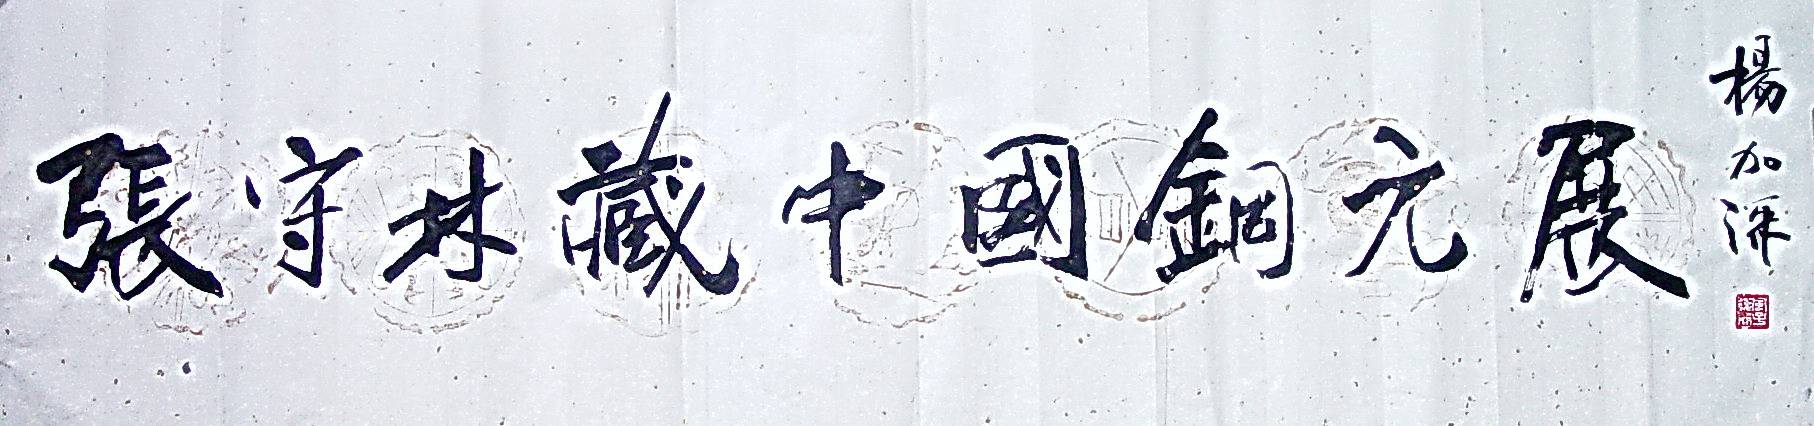 張守林藏中國銅元展
楊加深